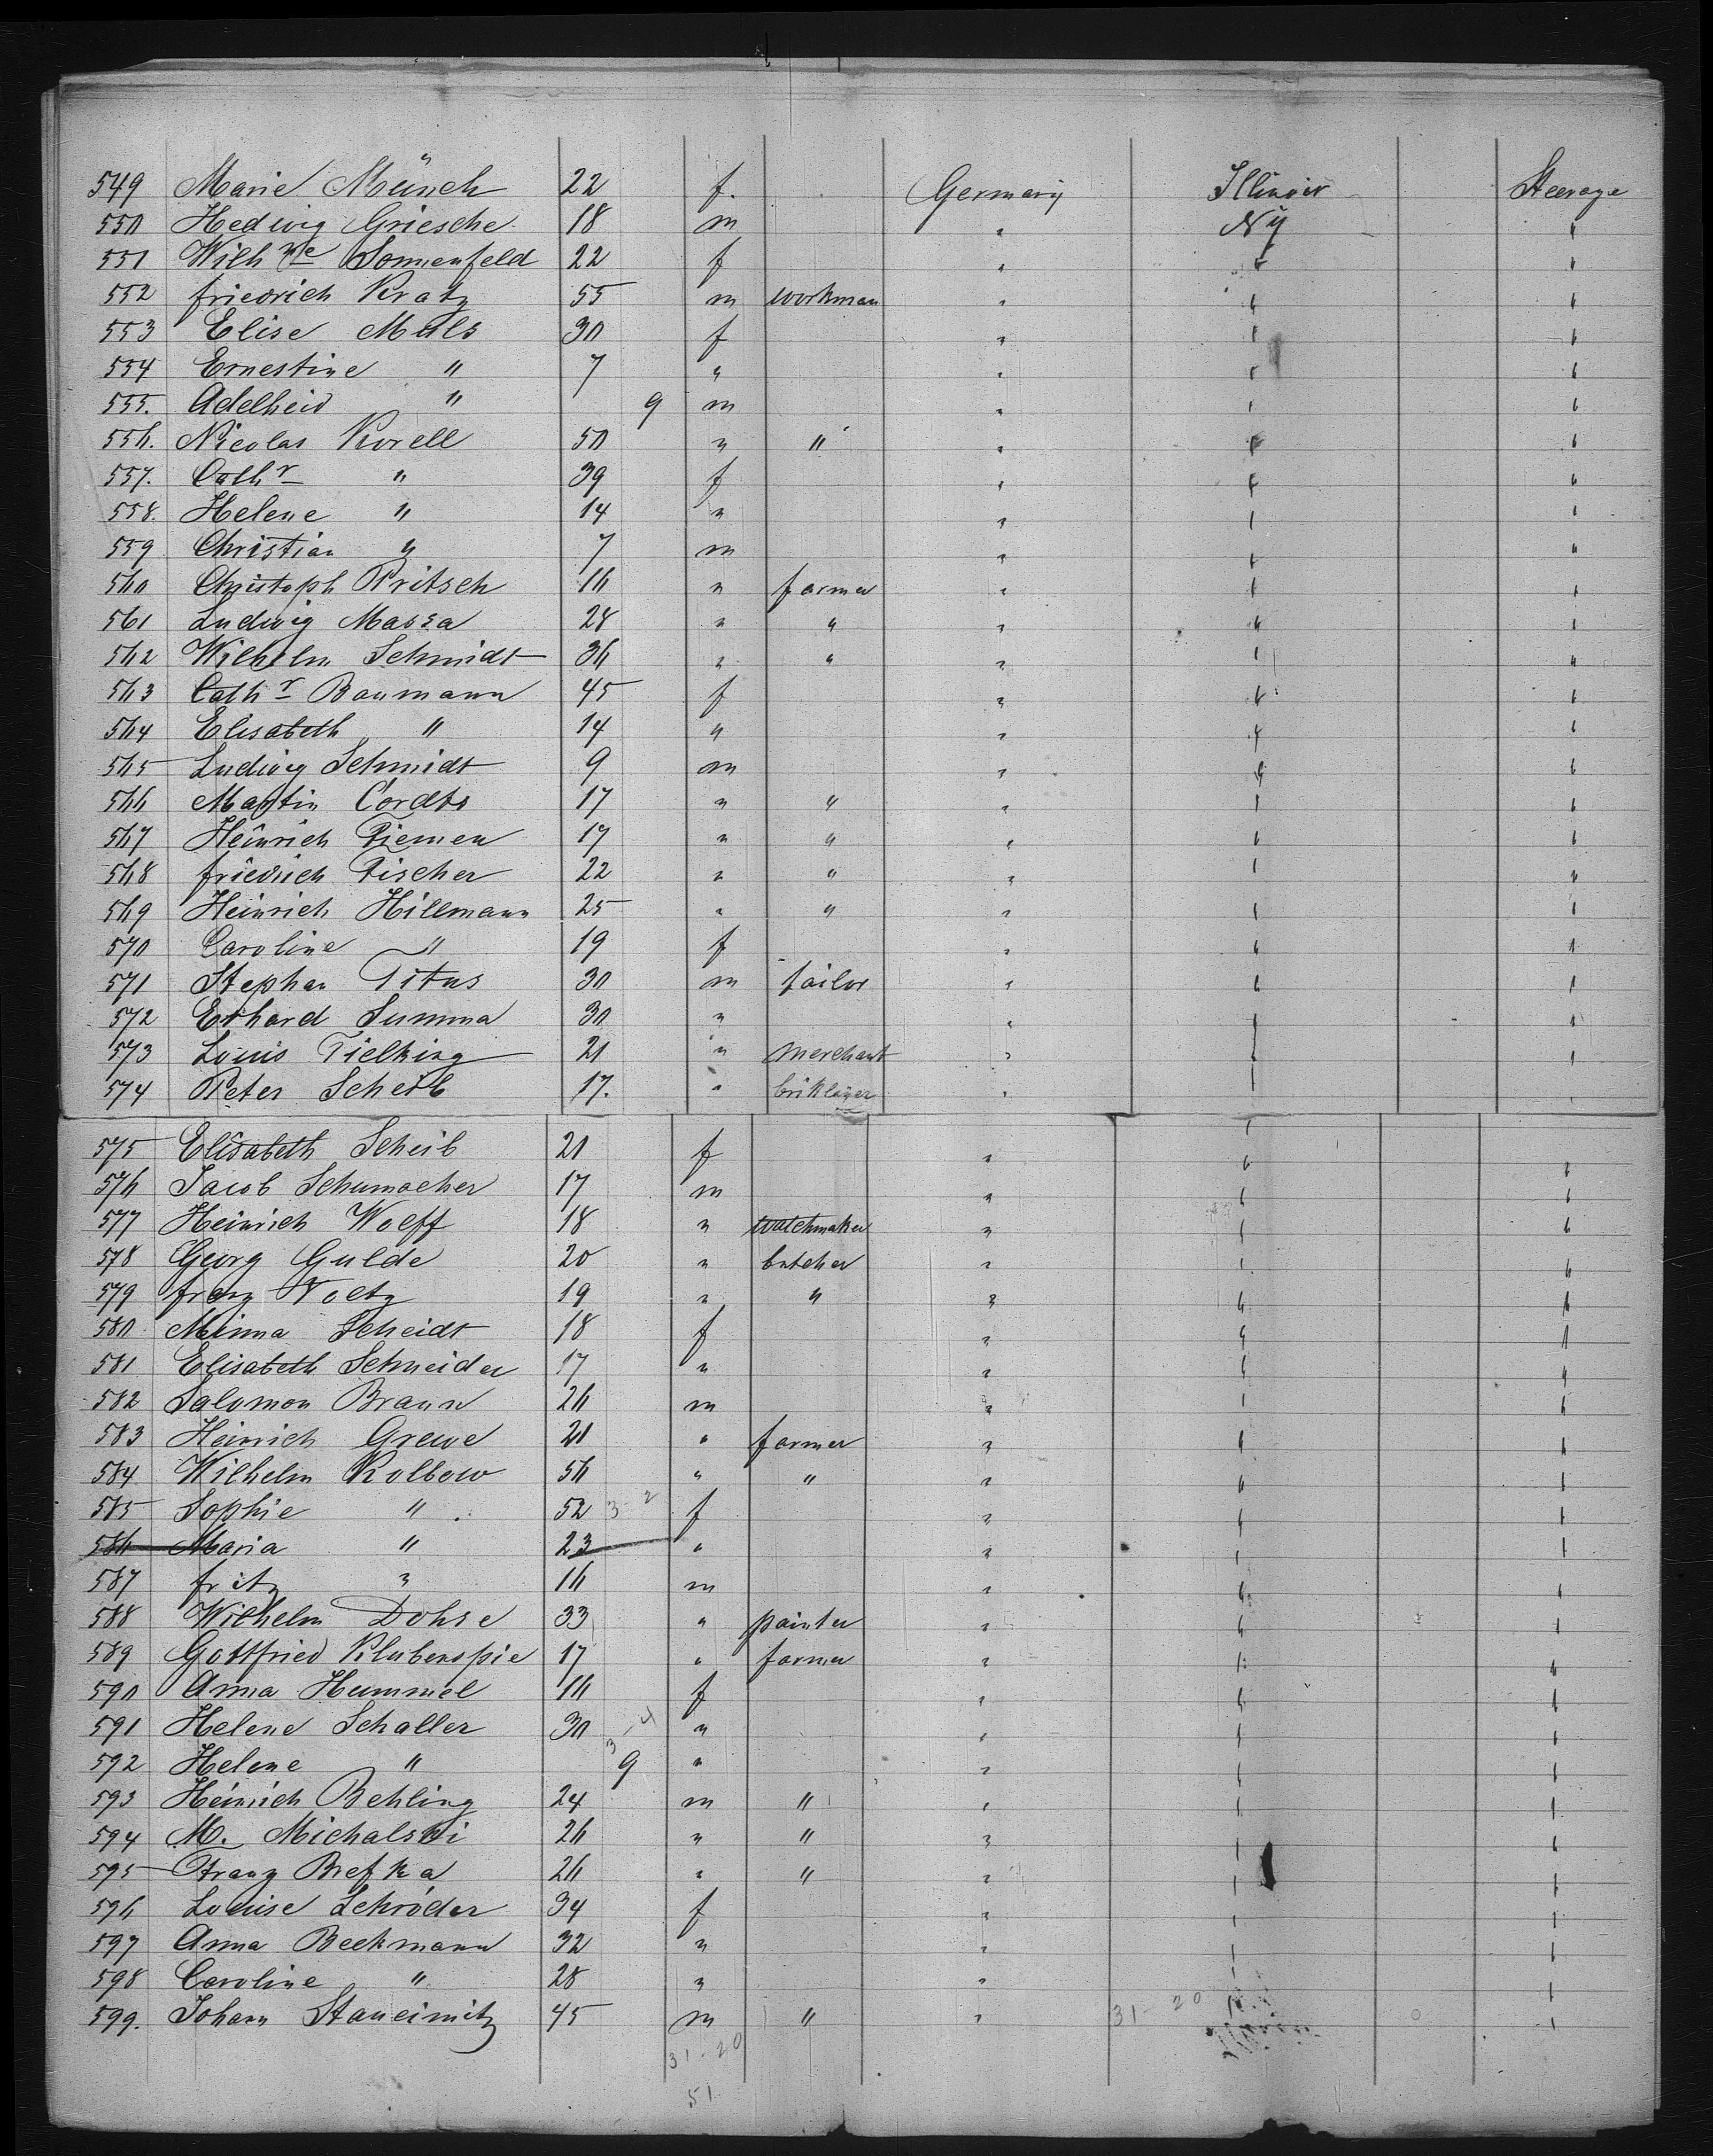 549 Marie Münch 22 f. Germany Illinois Steerage
550 Hedwig Griesche 18 m " NY "
551 Wilhne Sonnenfeld 22 f " " "
552 friedrich Kratz 55 m workman " " "
553 Elise Mals 30 f " " "
554 Ernestine " 7 " " " "
555. Adelheid " 9 m " " "
556. Nicolas Korell 50 " " " " "
557. Cathr " 39 f " " "
558. Helene " 14 " " " "
559 Christian " 7 m " " "
560 Christoph Pritsch 16 " farmer " " "
561 Ludwig Massa 28 " " " " "
562 Wilhelm Schmidt 36 " " " " "
563 Cathr Baumann 45 f " " "
564 Elisabeth " 14 " " " "
565 Ludwig Schmidt 9 m " " "
566 Martin Cordts 17 " " " " "
567 Heinrich Tiemen 17 " " " " "
568 friedrich Fischer 22 " " " " "
569 Heinrich Hillmann 25 " " " " "
570 Caroline " 19 f " " "
571 Stephan Titus 30 m tailor " " "
572 Erhard Summa 30 " " " "
573 Louis Tielking 21 " merchant " " "
574 Peter Scheib 17. " briklayer " " "
575 Elisabeth Scheib 21 f " " "
576 Jacob Schumacher 17 m " " "
577 Heinrich Wolff 18 " watchmaker " " "
578 Georg Gulde 20 " butcher " " "
579 franz Noetz 19 " " " " "
580 Minna Scheidt 18 f " " "
581 Elisabeth Schneider 17 " " " "
582 Salomon Braun 26 m " " "
583 Heinrich Grewe 21 " farmer " " "
584 Wilhelm Kolbow 56 " " " " "
585 Sophie " 52 3-2 f " " "
586 Maria " 23 " " " "
587 fritz " 16 m " " "
588 Wilhelm Dohse 33 " painter " " "
589 Gottfried Kluberspie 17 " farmer " " "
590 Anna Hummel 16 f " " "
591 Helene Schaller 30 3-4 " " " "
592 Helene " 9 " " " "
593 Heinrich Behling 24 m " " " "
594 M. Michalski 26 " " " " "
595 Franz Brefka 26 " " " " "
596 Louise Schröder 34 f " " "
597 Anna Beckmann 32 " " " "
598 Caroline " 28 " " " "
599. Johann Staneimitz 45 m " " 31-20 "
31-20
51